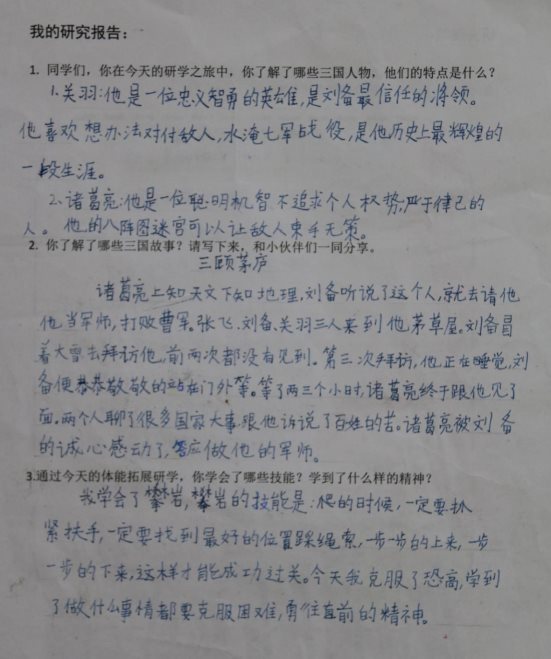 我的研究报告：
1. 同学们，你在今天的研学之旅中，你了解了哪些三国人物，他们的特点是什么？
1.关羽：他是一位忠义智勇的英雄，是刘备最信任的将领。
他喜欢想办法对付敌人，水淹七军战役，是他历史上最辉煌的
一段生涯。
2.诸葛亮：他是一位聪明机智不追求个人权势，严于律己的
人。他的八阵图迷宫可以让敌人束手无策。
2. 你了解了哪些三国故事？请写下来，和小伙伴们一同分享。
三顾茅庐
诸葛亮上知天文下知地理，刘备听说了这个人，就去请他
他当军师，打败曹军。张飞、刘备、关羽三人来到他茅草屋。刘备冒
着大雪去拜访他，前两次都没有见到。第三次拜访，他正在睡觉，刘
备便恭恭敬敬的站在门外等。等了两三个小时，诸葛亮终于跟他见了
面。两个人聊了很多国家大事，跟他诉说了百姓的苦。诸葛亮被刘备
的诚心感动了，答应做他的军师。
3.通过今天的体能拓展研学，你学会了哪些技能？学到了什么样的精神？
我学会了攀岩，攀岩的技能是：爬的时候，一定要抓
紧扶手，一定要找到最好的位置踩绳索，一步一步的上来，一步
一步的下来，这样才能成功过关。今天我克服了恐高，学到
了做什么事情都要克服困难，勇往直前的精神。